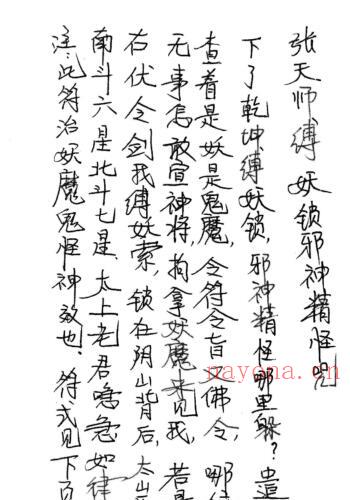 张天师缚妖锁邪神精怪咒
下了乾坤缚妖锁，邪神精怪哪里躲？遣
查着是妖是鬼魔，令符令旨又佛令，哪
无事怎敢宣神将，拘拿妖魔来见我，若是
右伏令剑我缚妖索，锁在阴山背后，太山
南斗六星北斗七星、太上老君噫急如律
注：此符治妖魔鬼怪神效也、符式见下页
nayona.cn